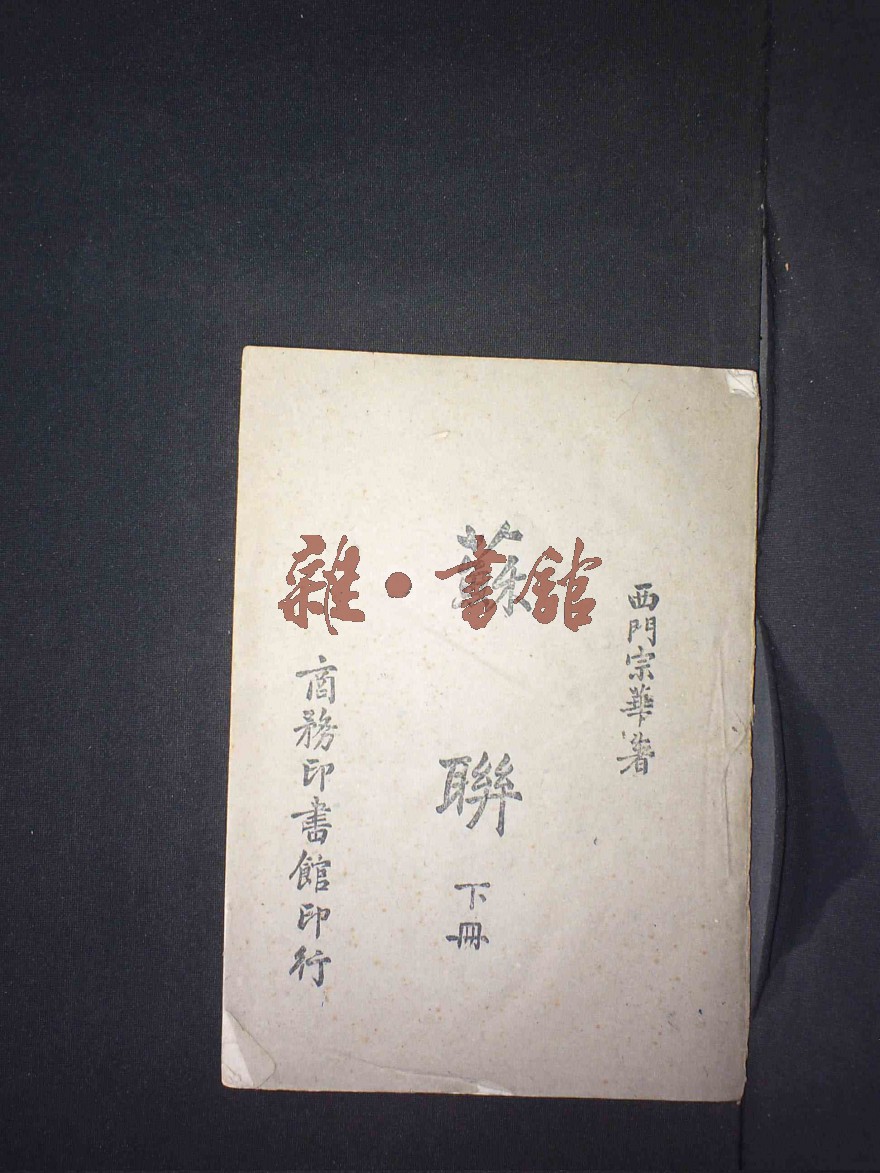 西門宗華著
蘇聯
下冊
商務印書館印行
雜·書館